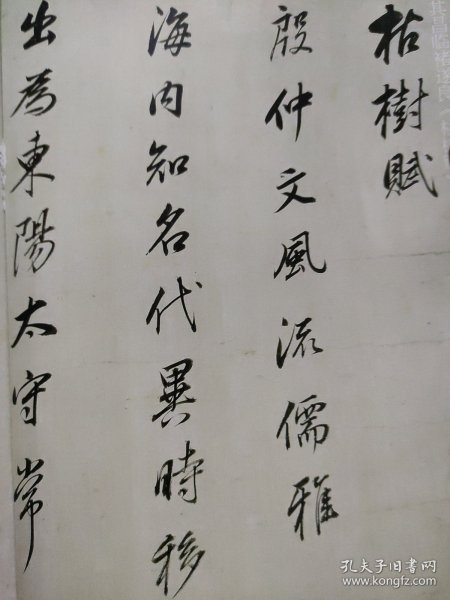 枯樹賦
殷仲文風流儒雅
海内知名代異時移
出為東陽太守常
孔夫子旧书网
www.kongfz.com